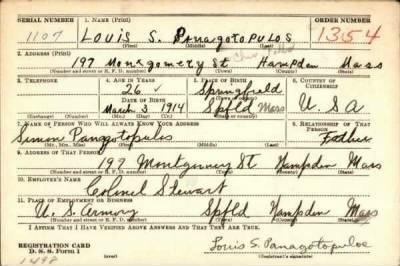 SERIAL NUMBER 1. NAME (Print) ORDER NUMBER
1107 LOUIS S. PANAGOTOPULOS 1354
(First) (Middle) (Last)
2. ADDRESS (Print)
197 Montgomery St Hampden Mass
(Number and street or R. F. D. number) (Town) (County) (State)
3. TELEPHONE 4. AGE IN YEARS 5. PLACE OF BIRTH 6. COUNTRY OF CITIZENSHIP
26 Springfield
DATE OF BIRTH
March 3, 1914 Spfld Mass U.S.A
(Exchange) (Number) (Mo.) (Day) (Yr.) (State or country)
7. NAME OF PERSON WHO WILL ALWAYS KNOW YOUR ADDRESS 8. RELATIONSHIP OF THAT PERSON
Simon Panagotopulos Father
(Mr., Mrs., Miss) (First) (Middle) (Last)
9. ADDRESS OF THAT PERSON
197 Montgomery St Hampden Mass
(Number and street or R. F. D. number) (Town) (County) (State)
10. EMPLOYER'S NAME
Colonel Stewart
11. PLACE OF EMPLOYMENT OR BUSINESS
U.S. Armory Spfld Hampden Mass
(Number and street or R. F. D. number) (Town) (County) (State)
I AFFIRM THAT I HAVE VERIFIED ABOVE ANSWERS AND THAT THEY ARE TRUE.
REGISTRATION CARD
D. S. S. Form 1 Louis S. Panagotopulos
1498